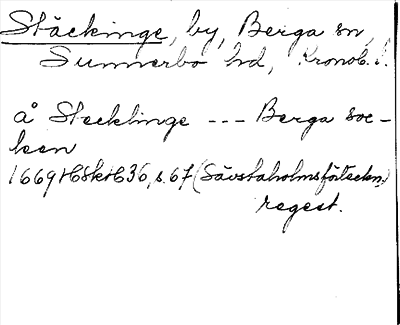 Stäckinge, by, Berga sn,
Sunnerbo hd, Kronob. l.
å Stecklinge --- Berga soc-
ken
1669 HSkH 36, s. 67 (Sävstaholmsförteckn.)
regest.